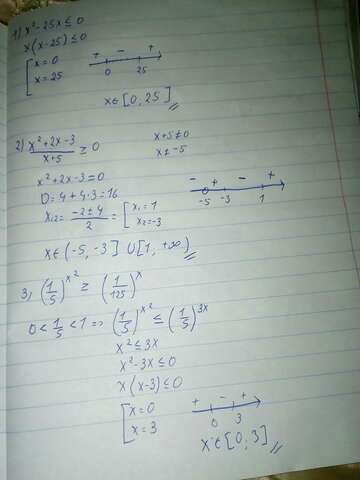 1) x²-25x ≤ 0
x(x-25) ≤ 0
[x=0
x=25
+ - +
0 25
x∈[0,25]
2) (x²+2x-3)/(x+5) ≥ 0
x+5≠0
x≠-5
x²+2x-3=0
D=4+4·3=16
x₁,₂=(-2±4)/2=[x₁=1
x₂=-3
- + - +
-5 -3 1
x∈(-5,-3]∪[1,+∞)
3) (1/5)^x² ≥ (1/125)^x
0<1/5<1 => (1/5)^x² ≤ (1/5)^3x
x² ≤ 3x
x²-3x ≤ 0
x(x-3) ≤ 0
[x=0
x=3
+ - +
0 3
x∈[0;3]